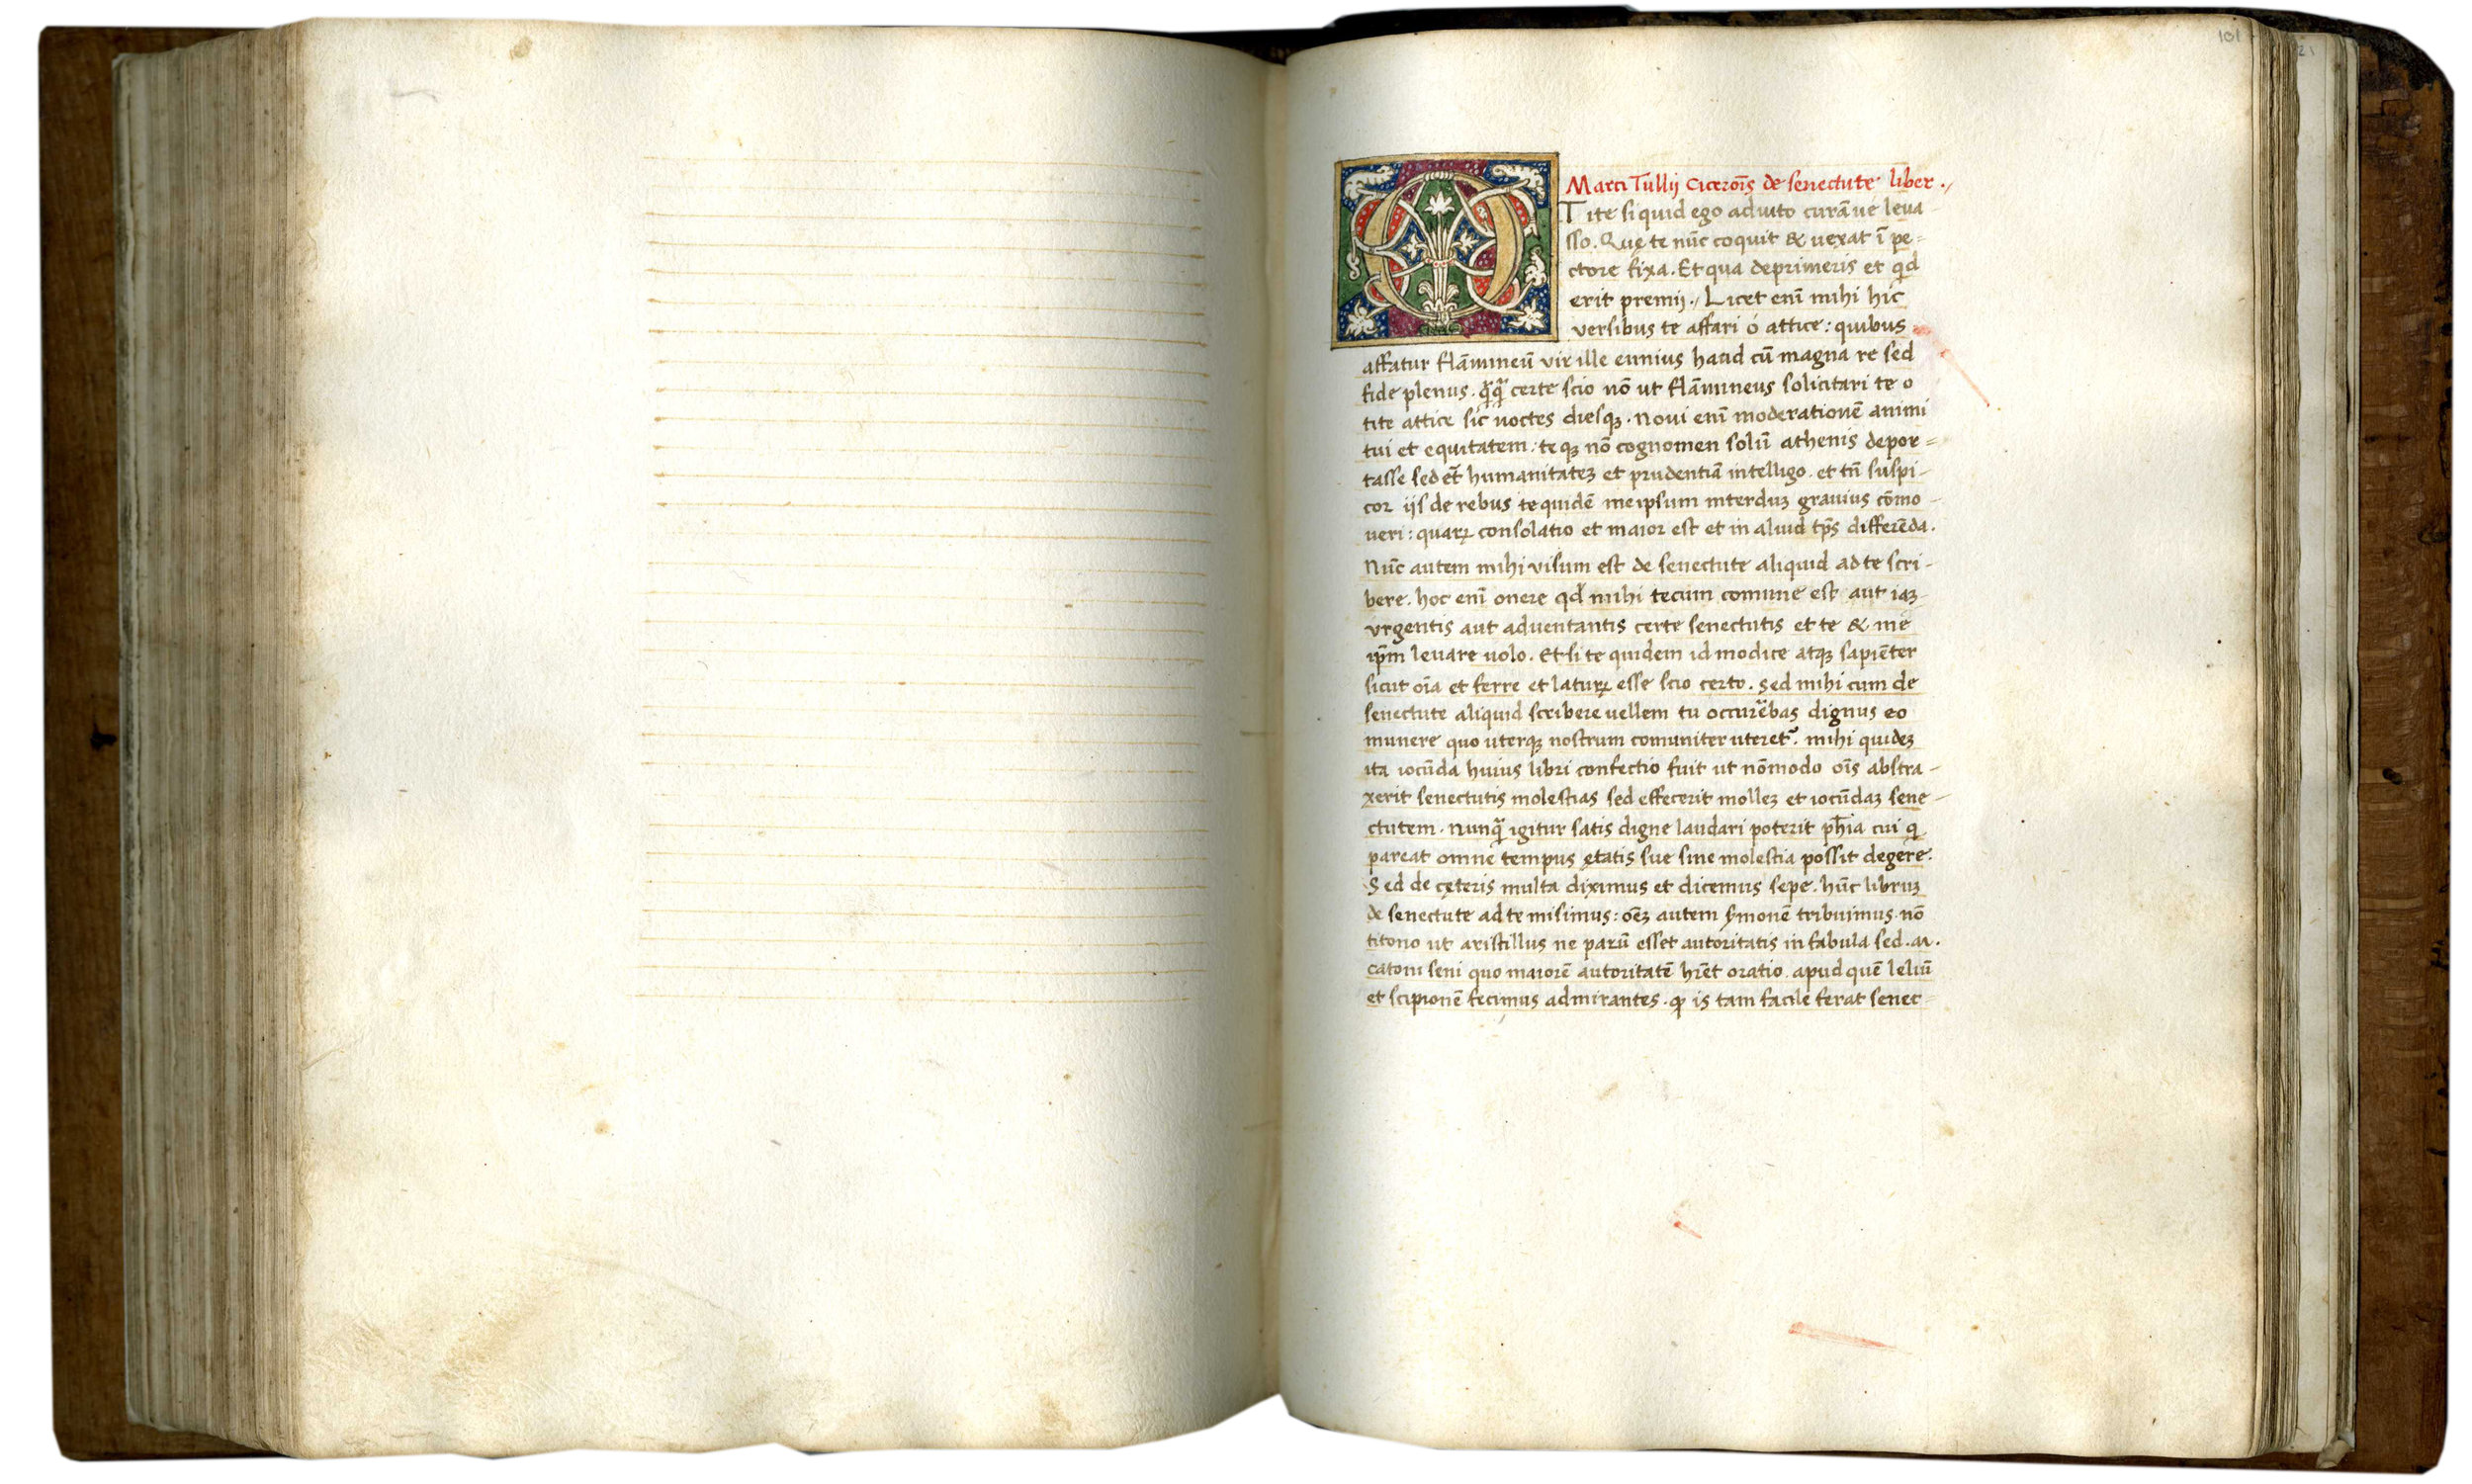 101
21
Marci Tullij Ciceroīs de senectute liber ./
O Tite si quid ego adiuto curāue leua
sso. Quę te nūc coquit & uexat ī pe=
ctore fixa. Et qua deprimeris et qd
erit premij ./ Licet enī mihi hic
versibus te affari ó attice: quibus
affatur flāmineū vir ille ennius haud cū magna re sed
fide plenus. certe scio nō ut flāmineus solicitari te o
tite attice sic noctes diesqꝫ. Noui enī moderationē animi
tui et equitatem: teqꝫ nō cognomen solū athenis depor=
tasse sed et̄ humanitateꝫ et prudentiā intelligo. et tn̄ suspi-
cor ijs de rebus te quidē meipsum interduꝫ grauius cōmo-
ueri: quaꝝ consolatio et maior est et in aliud tp̄s differēda.
Nūc autem mihi visum est de senectute aliquid ad te scri-
bere. hoc enī onere qd mihi tecum comune est aut iaꝫ
vrgentis aut aduentantis certe senectutis et te & me
ip̄m leuare uolo. Etsi te quidem id modice atqꝫ sapiēter
sicut oīa et ferre et latuꝝ esse scio certo. Sed mihi cum de
senectute aliquid scribere uellem tu occurēbas dignus eo
munere quo uterqꝫ nostrum comuniter uteret᷑. mihi quideꝫ
ita iocūda huius libri confectio fuit ut nōmodo oīs abstra-
xerit senectutis molestias sed effecerit molleꝫ et iocūdaꝫ sene-
ctutem. Nunꝗ̄ igitur satis digne laudari poterit ph̄ia cui ꝗ
pareat omne tempus ętatis sue sine molestia possit degere.
Sed de cęteris multa diximus et dicemus sepe. hūc libruꝫ
de senectute ad te misimus: oēꝫ autem ẜmonē tribuimus nō
titono ut aristillus ne parū esset autoritatis in fabula sed .M.
catoni seni quo maiorē autoritatē hr̄et oratio. apud quē leliū
et scipionē fecimus admirantes. ꝙ is tam facile ferat senec=